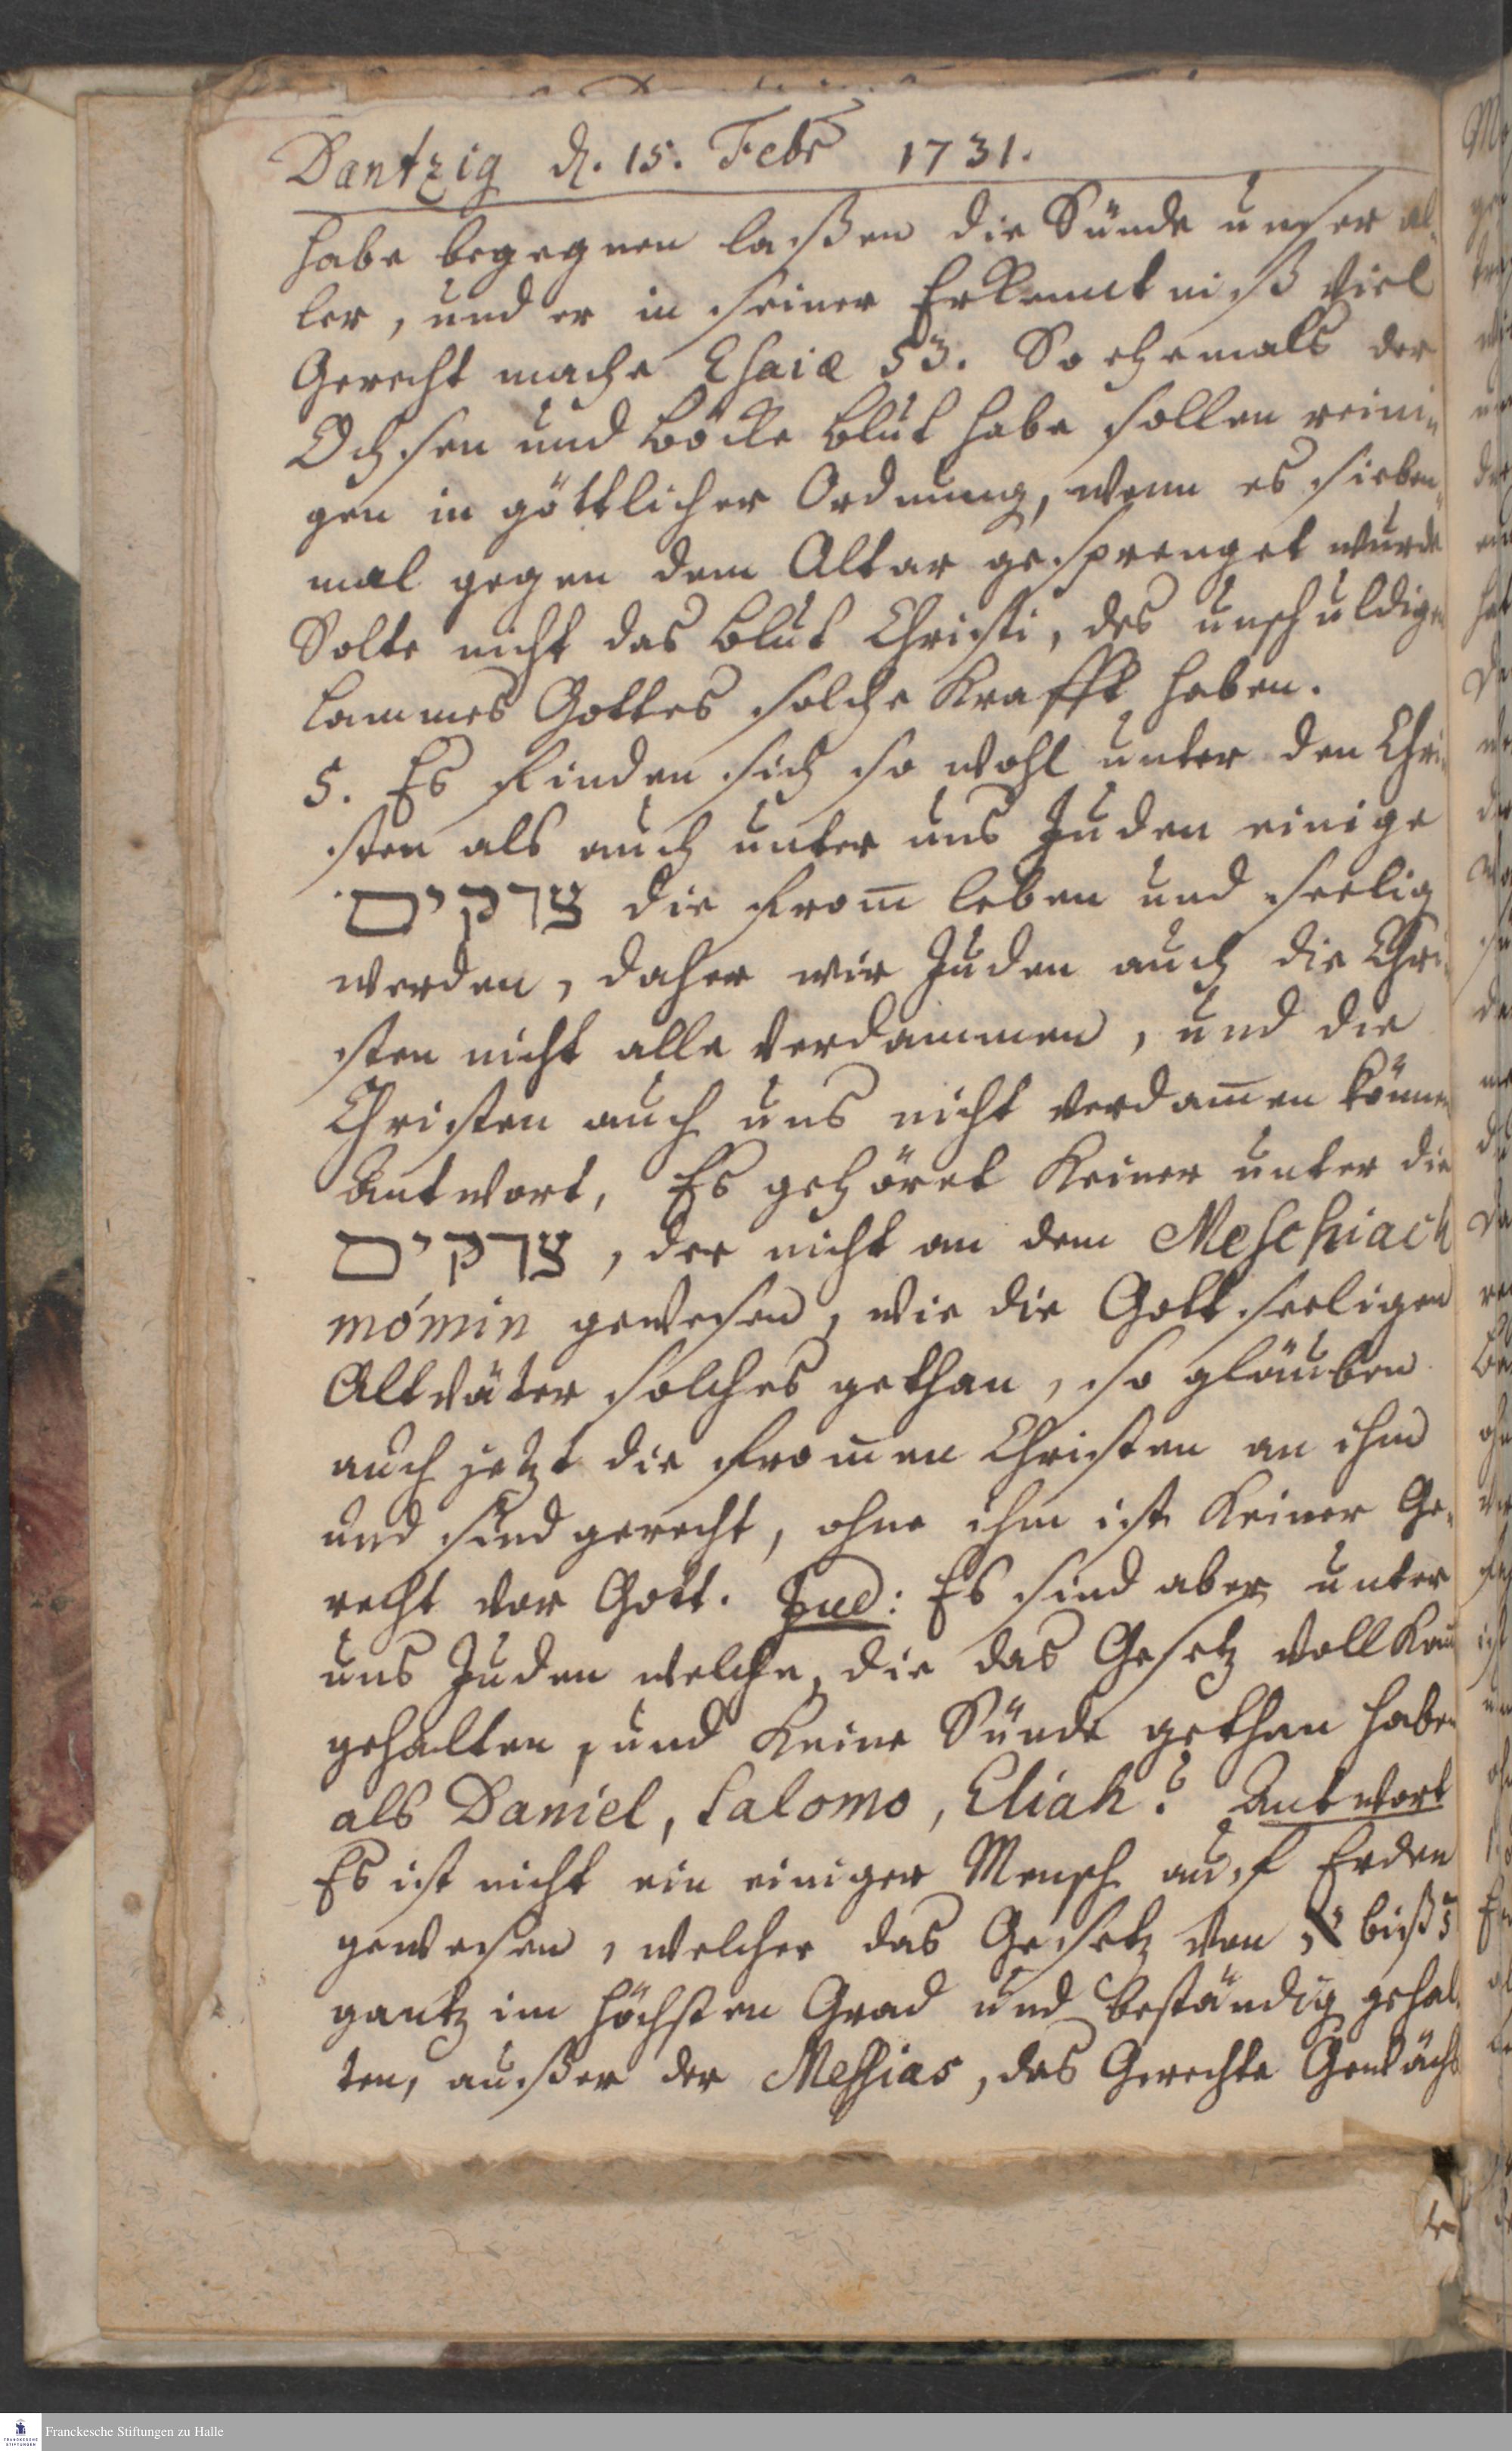 Dantzig d. 15. Febr 1731.
habe begegnen laßen die Sünde unser al-
ler, und er in seiner Erkenntniß viel
Gerecht mache Esaiæ 53. So ehemals der
Ochsen und Böcke Blut habe sollen reini-
gen in göttlicher Ordnung, wenn es sieben-
mal gegen dem Altar gesprenget wurde
Solte nicht das Blut Christi, des unschuldigen
Lammes Gottes solche Krafft haben.
5. Es finden sich so wohl unter den Chri-
sten als auch unter uns Juden einige
צדקים die from̅ leben und seelig
werden, daher wir Juden auch die Chri-
sten nicht alle verdammen, und die
Christen auch uns nicht verdam̅en können
Antwort, Es gehöret keiner unter die
צדקים, der nicht an dem Meschiach
mómin gewesen, wie die Gottseeligen
Altväter solches gethan, so gläuben
auch jetzt die from̅en Christen an ihm
und sind gerecht, ohne ihm ist keiner Ge-
recht vor Gott. Jud: Es sind aber unter
uns Juden welche, die das Gesetz vollkom̅
gehalten, und keine Sünde gethan haben
als Daniel, Salomo, Eliah? Antwort
Es ist nicht ein einiger Mensch auf Erden
gewesen, welcher das Gesetz von א biß
gantz im höchsten Grad und beständig gehal-
ten, außer der Messias, das Gerechte Gewächs
Franckesche Stiftungen zu Halle